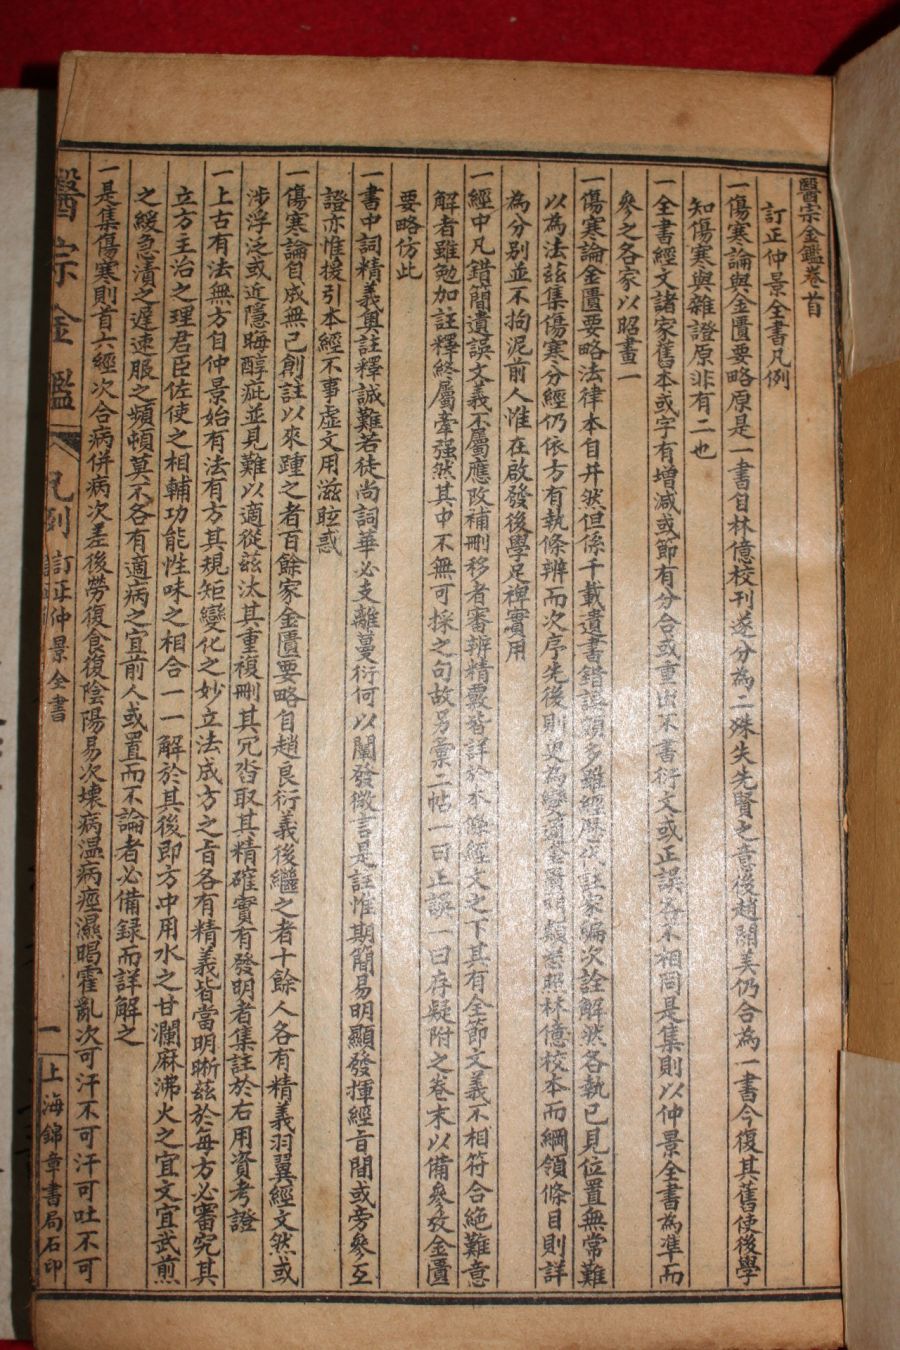 醫宗金鑑卷首
訂正仲景全書凡例
一傷寒論與金匱要略原是一書自林億校刊遂分為二殊失先賢之意後趙開美仍合為一書今復其舊使後學
知傷寒與雜證原非有二也
一全書經文諸家舊本或字有增減或節有分合或重出不書衍文或正誤各不相同是集則以仲景全書為準而
參之各家以昭畫一
一傷寒論金匱要略法律本自井然但係千載遺書錯誤頗多雖經歷代註家編次詮解然各執己見位置無常難
以為法茲集傷寒分經仍依方有執條辨而次序先後則更為變通金匱門類悉照林億校本而綱領條目則詳
為分別並不拘泥前人惟在啟發後學足裨實用
一經中凡錯簡遺誤文義不屬應改補刪移者審辨精覈皆詳於本條經文之下其有全節文義不相符合絕難意
解者雖勉加註釋終屬牽强然其中不無可採之句故另彙二帖一曰正誤一曰存疑附之卷末以備參攷金匱
要略仿此
一書中詞精義奧註釋誠難若徒尚詞華必支離蔓衍何以闡發微言是註惟期簡易明顯發揮經旨間或旁參互
證亦惟援引本經不事虛文用滋眩惑
一傷寒論自成無己創註以來踵之者百餘家金匱要略自趙良衍義後繼之者十餘人各有精義羽翼經文然或
涉浮泛或近隱晦醇疵並見難以適從茲汰其重複刪其冗沓取其精確實有發明者集註於右用資考證
一上古有法無方自仲景始有法有方其規矩變化之妙立法成方之旨各有精義皆當明晰茲於每方必審究其
立方主治之理君臣佐使之相輔功能性味之相合一一解於其後即方中用水之甘瀾麻沸火之宜文宜武煎
之緩急漬之遲速服之頻頓莫不各有適病之宜前人或置而不論者必備録而詳解之
一是集傷寒則首六經次合病併病次差後勞復食復陰陽易次壞病温病痙濕暍霍亂次可汗不可汗可吐不可
醫宗金鑑 凡例 訂正仲景全書 一 上海錦章書局石印